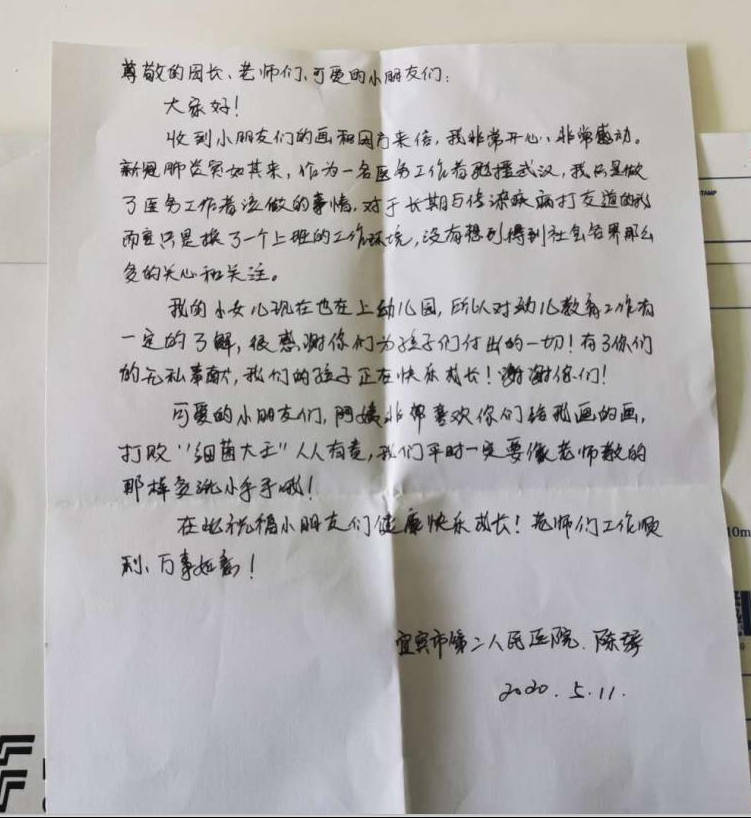 尊敬的园长、老师们、可爱的小朋友们:
大家好!
收到小朋友们的画和园方来信,我非常开心、非常感动。
新冠肺炎突如其来,作为一名医务工作者驰援武汉,我只是做
了医务工作者该做的事情,对于长期与传染疾病打交道的我
而言只是换了一个上班的工作环境,没有想到得到社会各界那么
多的关心和关注。
我的小女儿现在也在上幼儿园,所以对幼儿教育工作有
一定的了解,很感谢你们为孩子们付出的一切!有了你们
的无私奉献,我们的孩子正在快乐成长!谢谢你们!
可爱的小朋友们,阿姨非常喜欢你们给我画的画,
打败"细菌大王"人人有责,我们平时一定要像老师教的
那样多洗小手手哦!
在此祝福小朋友们健康快乐成长!老师们工作顺
利、万事如意!
宜宾市第二人民医院 陈
2020.5.11.
TAMP
10m